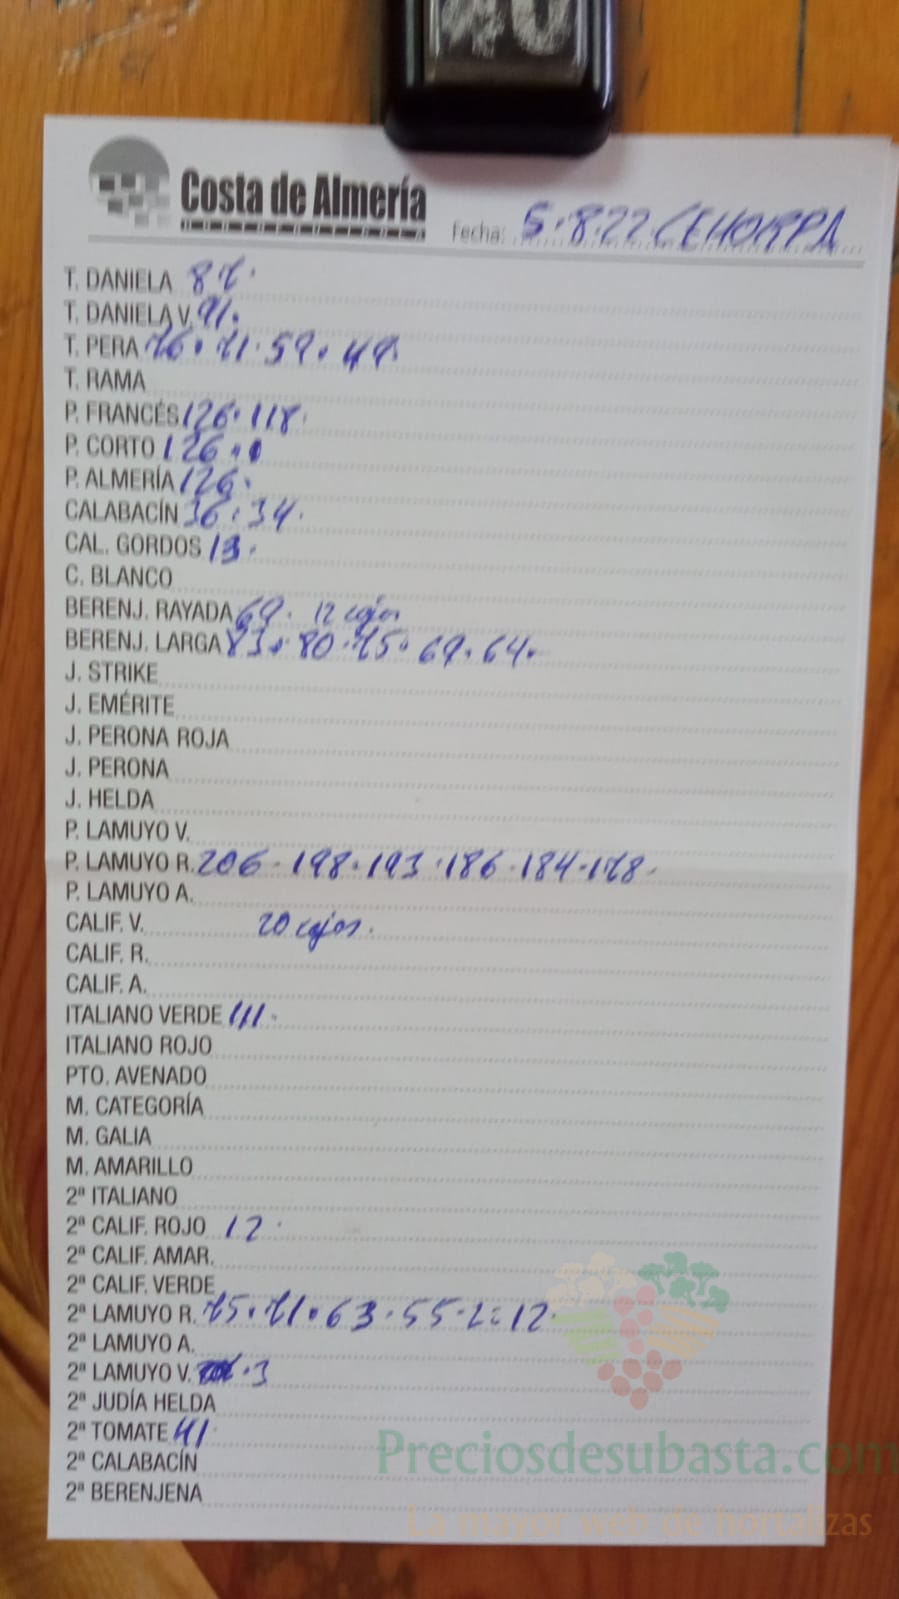 Costa de Almería
Fecha: 5.8.22 CEHORPA
T. DANIELA 87.
T. DANIELA V. 91.
T. PERA 76. 71. 59. 49.
T. RAMA
P. FRANCÉS 126. 118.
P. CORTO 126.
P. ALMERÍA 126.
CALABACÍN 36. 34.
CAL. GORDOS 13.
C. BLANCO
BERENJ. RAYADA 69. 12 cajas
BERENJ. LARGA 83. 80. 75. 69. 64.
J. STRIKE
J. EMÉRITE
J. PERONA ROJA
J. PERONA
J. HELDA
P. LAMUYO V.
P. LAMUYO R. 206-198.193.186.184-178-
P. LAMUYO A.
CALIF. V. 20 cajas.
CALIF. R.
CALIF. A.
ITALIANO VERDE 111.
ITALIANO ROJO
PTO. AVENADO
M. CATEGORÍA
M. GALIA
M. AMARILLO
2ª ITALIANO
2ª CALIF. ROJO 12.
2ª CALIF. AMAR.
2ª CALIF. VERDE
2ª LAMUYO R. 75. 71. 63. 55. 12.
2ª LAMUYO A.
2ª LAMUYO V. .3
2ª JUDÍA HELDA
2ª TOMATE 41.
2ª CALABACÍN
2ª BERENJENA
Preciosdesubasta.com
La mayor web de hortalizas